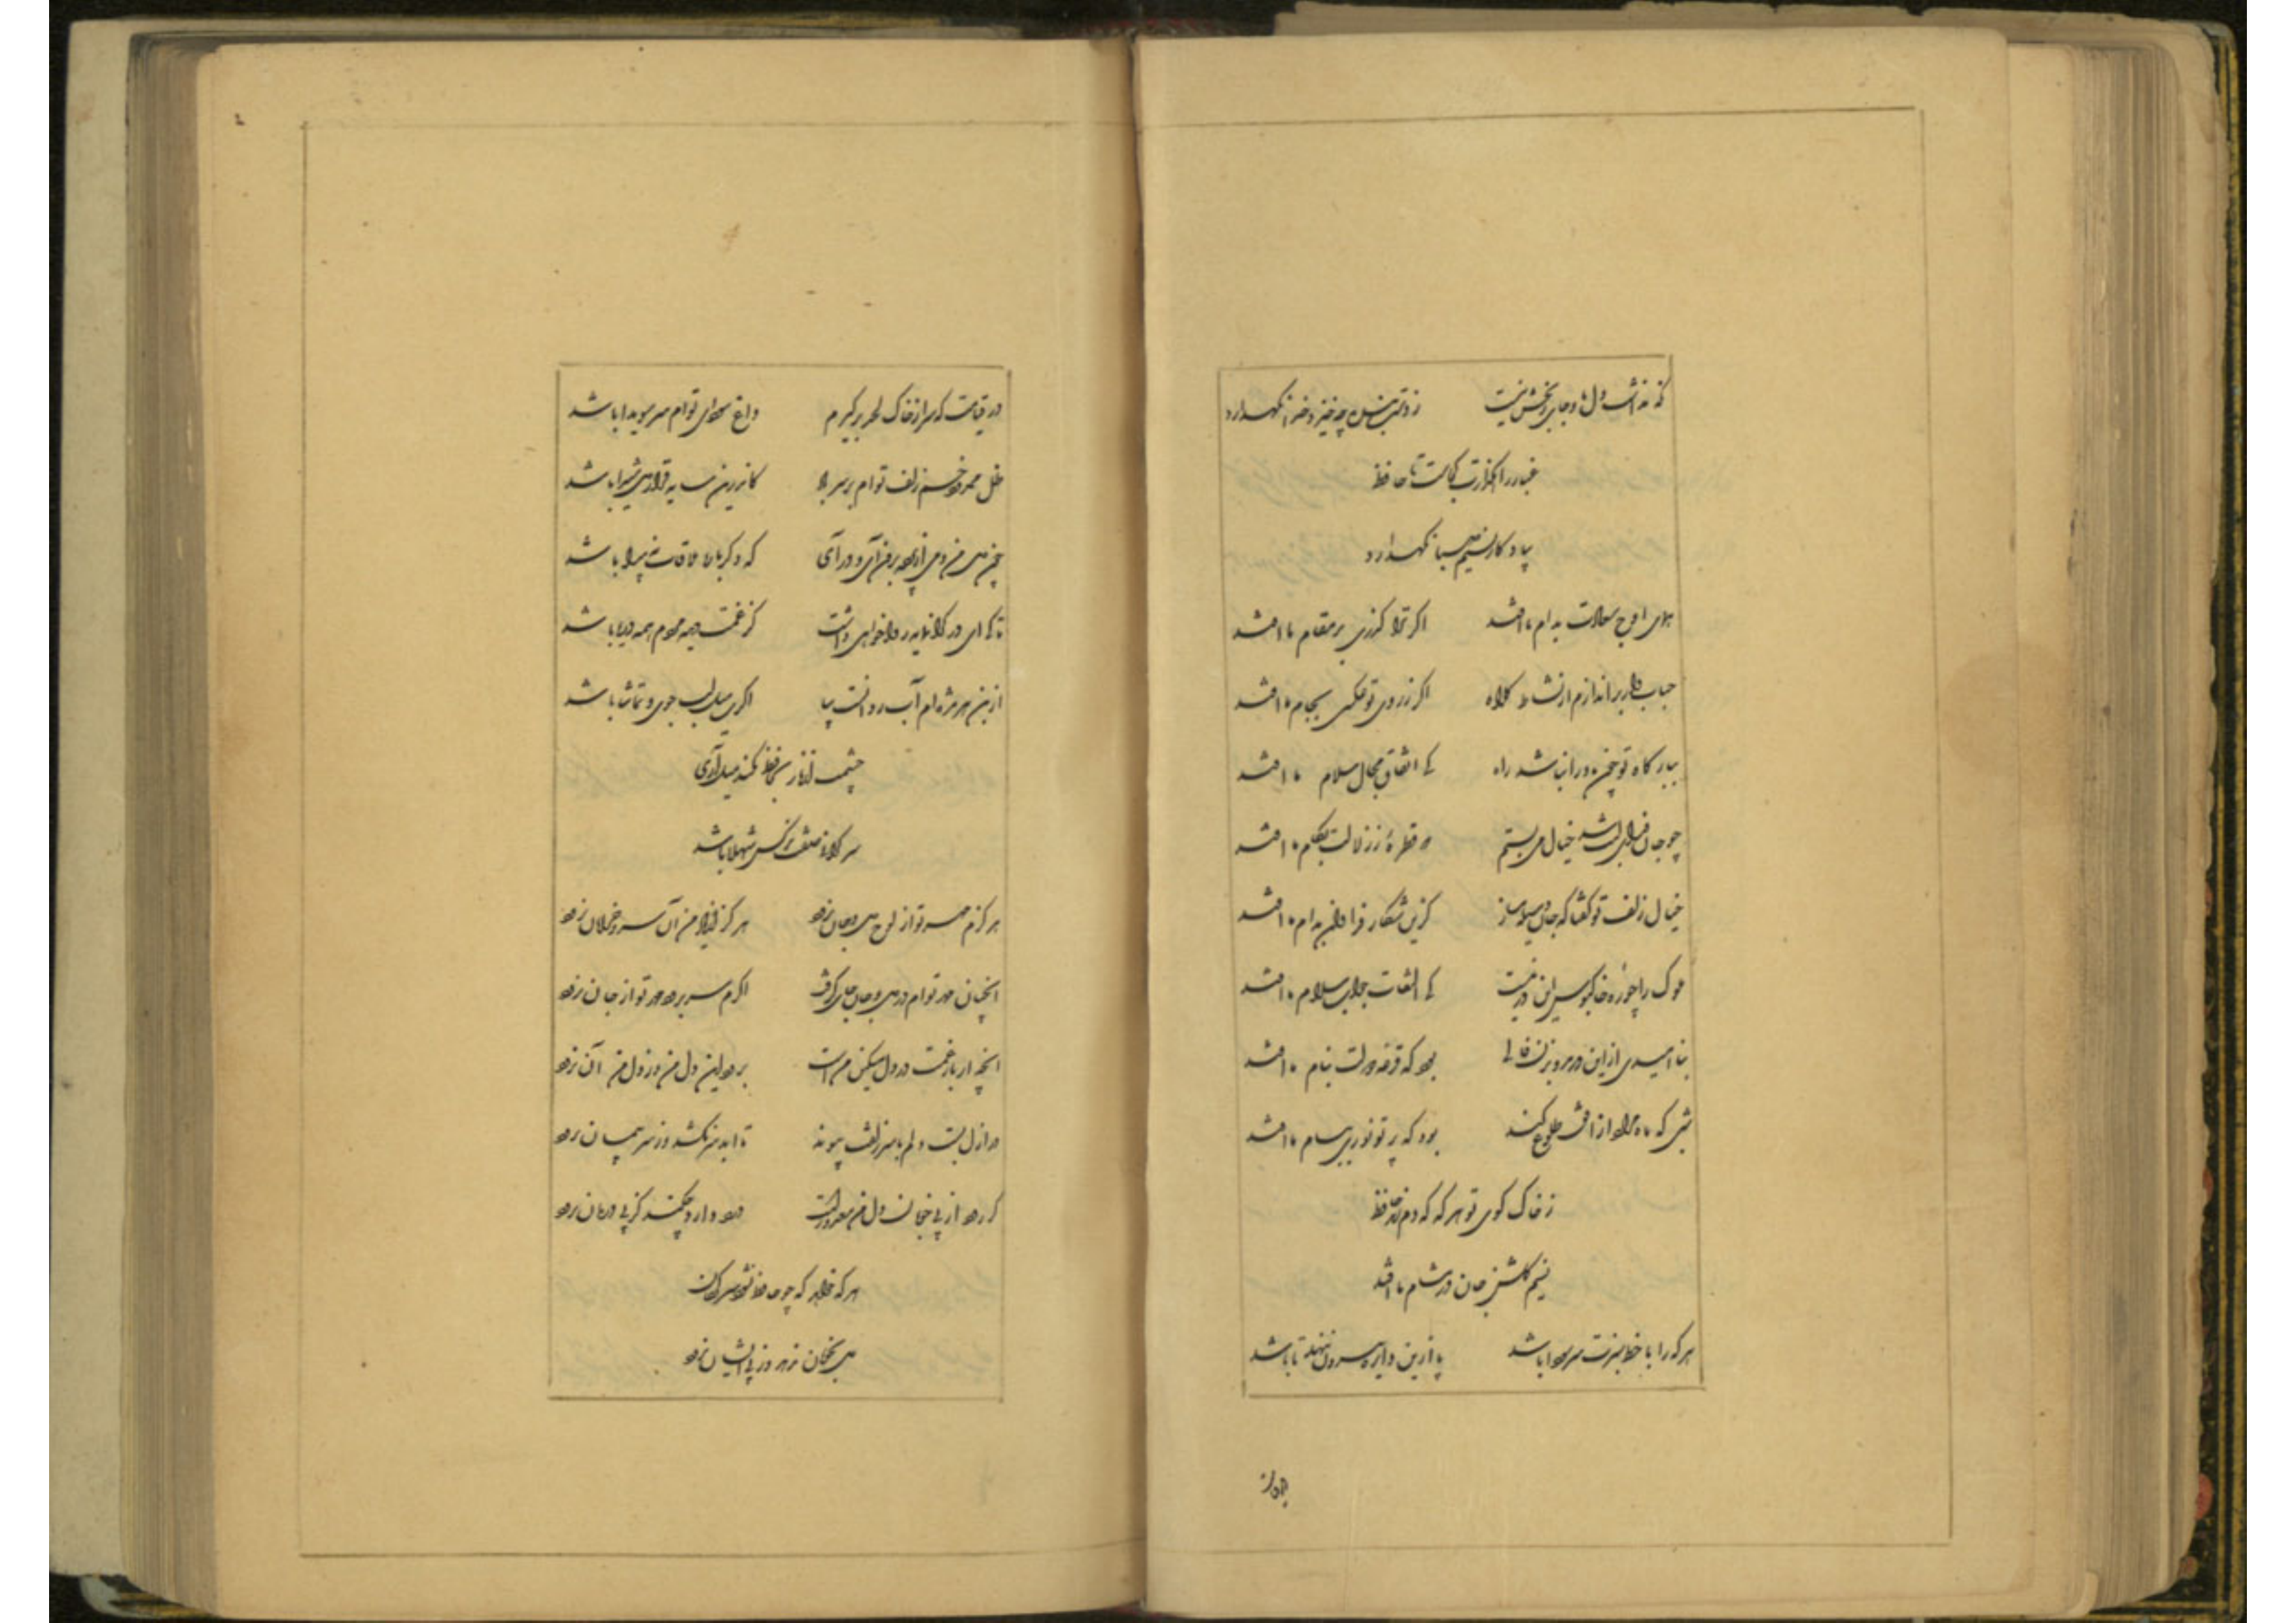 که نداشت دل ما و جای رنجش نیست ز دست بنده چه خیزد خدا نگهدارد
غبار راهگذارت کجاست تا حافظ
بیادگار نسیم صبا نگهدارد
همای اوج سعادت بدام ما افتد اگر ترا گذری بر مقام ما افتد
حباب وار براندازم از نشاط کلاه اگر ز روی تو عکسی بجام ما افتد
ببارگاه تو چون باد را نباشد راه کی اتفاق مجال سلام ما افتد
چو جان فدای لبت شد خیال می بستم که قطرهٔ ز زلالت بکام ما افتد
خیال زلف تو گفتا که جان وسیله مساز کزین شکار فراوان بدام ما افتد
ملوک را چو ره خاکبوس این در نیست کی التفات جواب سلام ما افتد
بناامیدی ازین در مرو بزن فالی بود که قرعه دولت بنام ما افتد
شبی که ماه مراد از افق طلوع کند بود که پرتو نوری ببام ما افتد
ز خاک کوی تو هر گه که دم زند حافظ
نسیم گلشن جان در مشام ما افتد
هر که را با خط سبزت سر سودا باشد پا ازین دایره بیرون ننهد تا باشد
در قیامت که سر از خاک لحد برگیرم داغ سودای توام سر سویدا باشد
ظل ممدود خم زلف توام بر سر باد کاندرین سایه قرار دل شیدا باشد
چون دل من دمی از پرده برون آی و درآی که دگر باره ملاقات نه پیدا باشد
تا کی ای در گرانمایه روا خواهی داشت کز غمت دیده مردم همه دریا باشد
از بن هر مژه ام آب روانست بیا اگرت میل لب جوی و تماشا باشد
چشمت از ناز بحافظ نکند میل آری
سرگرانی صفت نرگس شهلا باشد
هرگزم مهر تو از لوح دل و جان نرود هرگز از یاد من آن سرو خرامان نرود
آنچنان مهر توام در دل و جان جای گرفت که گرم سر برود مهر تو از جان نرود
آنچه از بار غمت در دل مسکین منست برود این دل من وز دل من آن نرود
در ازل بست دلم با سر زلفت پیوند تا ابد سر نکشد وز سر پیمان نرود
گر رود از پی خوبان دل من معذورست درد دارد چکند کز پی درمان نرود
هر که خواهد که چو حافظ نشود سرگردان
دل بخوبان ندهد وز پی ایشان نرود